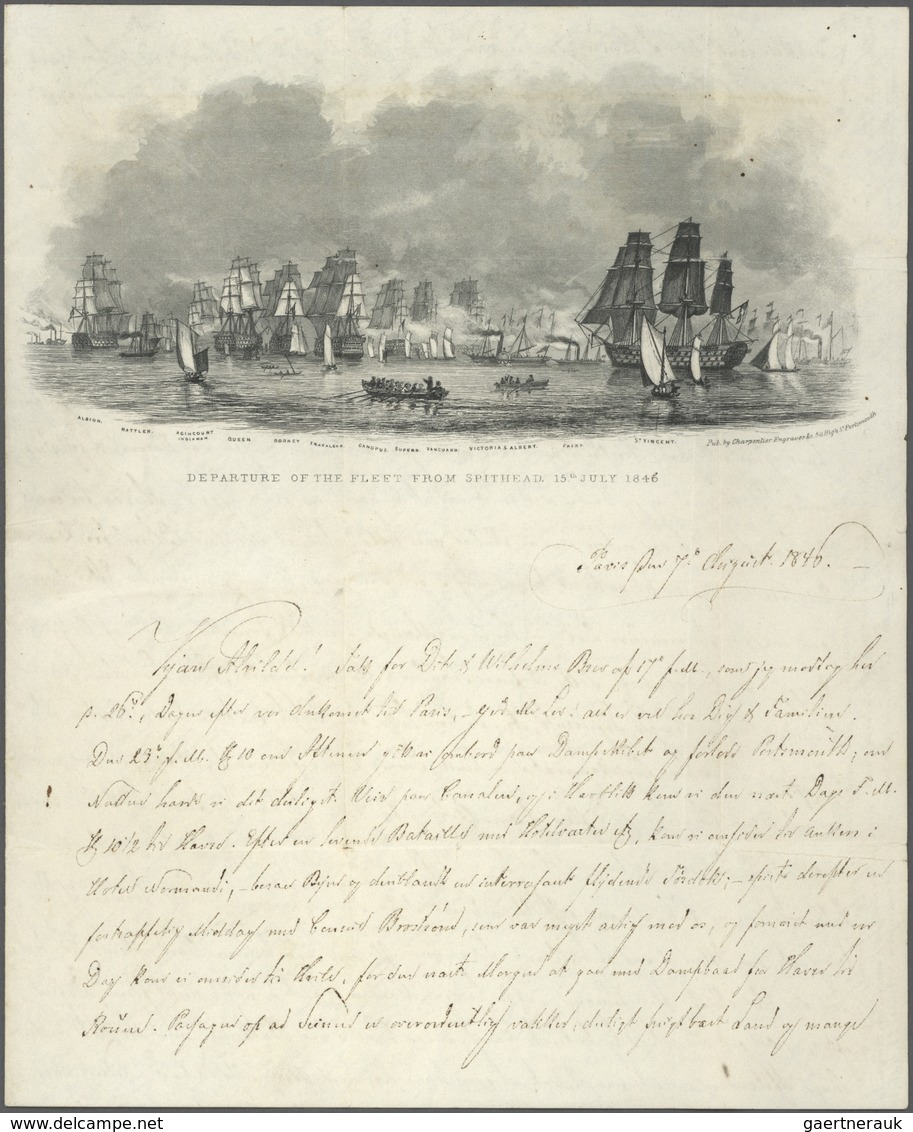 ALBION. RATTLER. AGINCOURT INDIAMAN QUEEN RODNEY TRAFALGAR. CANOPUS. SUPERB. VANGUARD. VICTORIA & ALBERT. FAIRY. ST VINCENT. Pub. by Charpentier Engraver &c. 50 High St Portsmouth
DEPARTURE OF THE FLEET FROM SPITHEAD. 15th JULY 1846
Paris den 7de August. 1846.
Kjære Alvilde! Tak for Dit & Vilhelms Brev af 17de f.M., som jeg modtog her
d. 26de, Dagen efter vor Ankomst til Paris, – alt er vel hos Dig & Familien.
Den 23de f.M. Kl 10 om Aftenen gik vi ombord paa Dampskibet og forlod Portsmouth; om
Natten havde vi det deiligste Veir paa Canalen, og kom vi den næste Dags F.M.
Kl 10 1/2 til Havre. Efter en Bataille med kom vi omsider til Ankers i
Hotel Normandi, – besaae Byen og en interessant flydende –
Middag med Consul Broström, som var meget artig mod os, og
Dag kom vi omsider til Hvile, for den næste Morgen at gaae med Dampbaad fra Havre til
Rouen. Passagen op ad Seinen er overordentlig vakker, deiligt frugtbart Land og mange
gaertnerauk